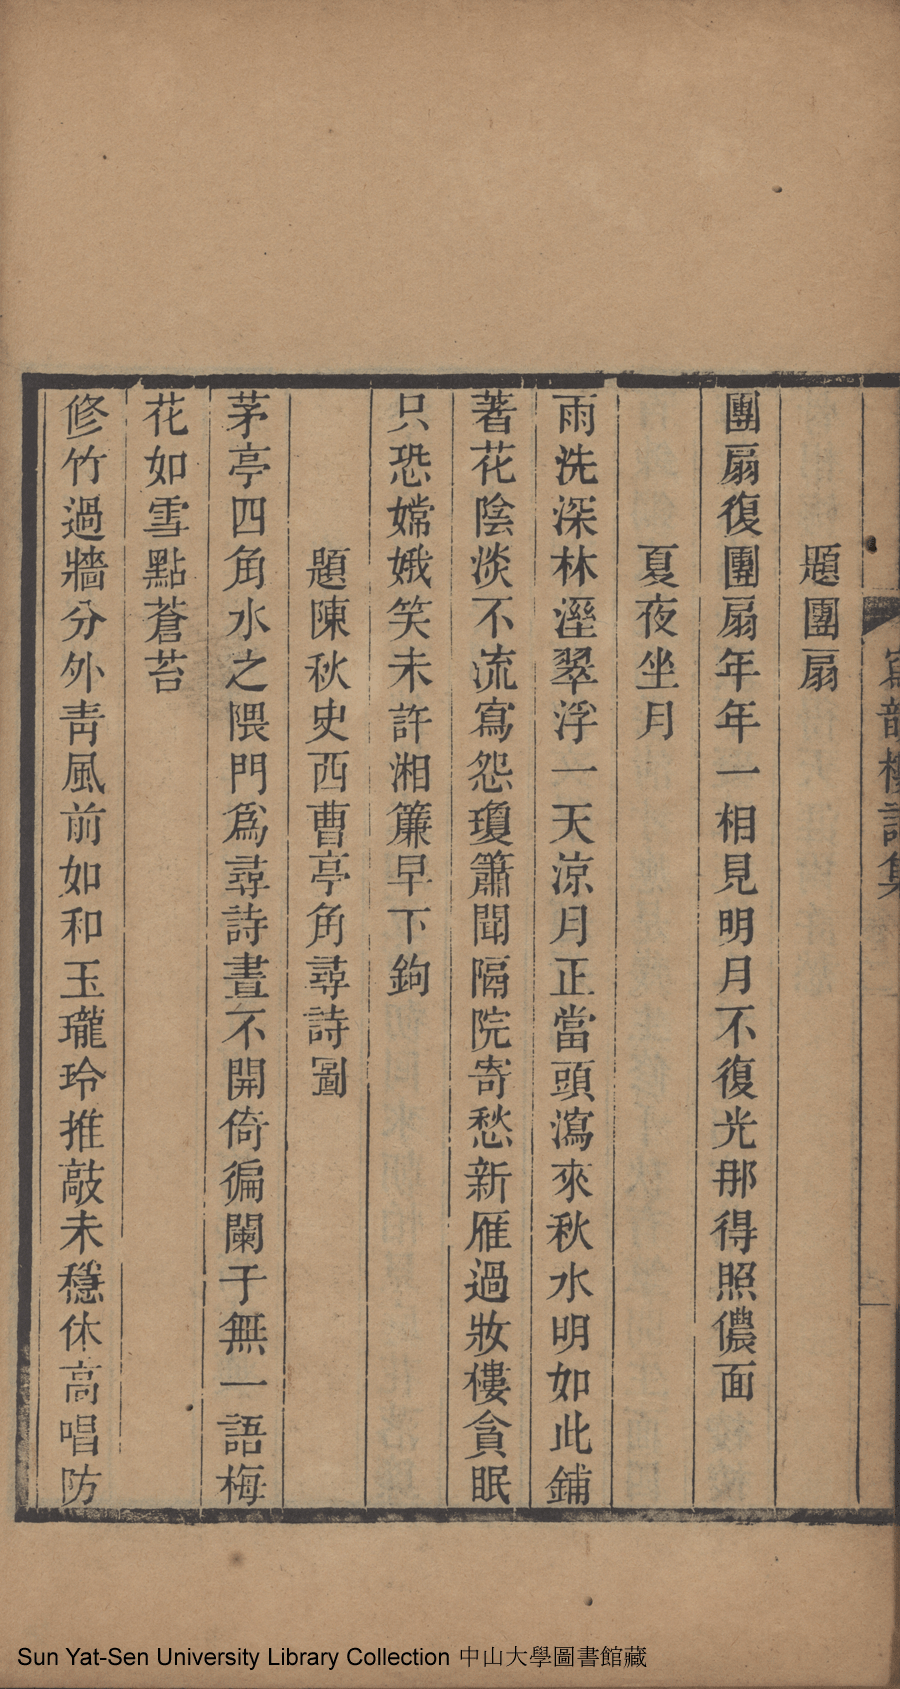 寫韻樓詩集
題團扇
團扇復團扇年年一相見明月不復光那得照儂面
夏夜坐月
雨洗深林溼翠浮一天涼月正當頭瀉來秋水明如此鋪
著花陰淡不流寫怨瓊簫聞隔院寄愁新雁過妝樓貪眠
只恐嫦娥笑未許湘簾早下鉤
題陳秋史西曹亭角尋詩圖
茅亭四角水之隈門爲尋詩晝不開倚徧闌干無一語梅
花如雪點蒼苔
修竹過牆分外靑風前如和玉瓏玲推敲未穩休高唱防
Sun Yat-Sen University Library Collection 中山大學圖書館藏